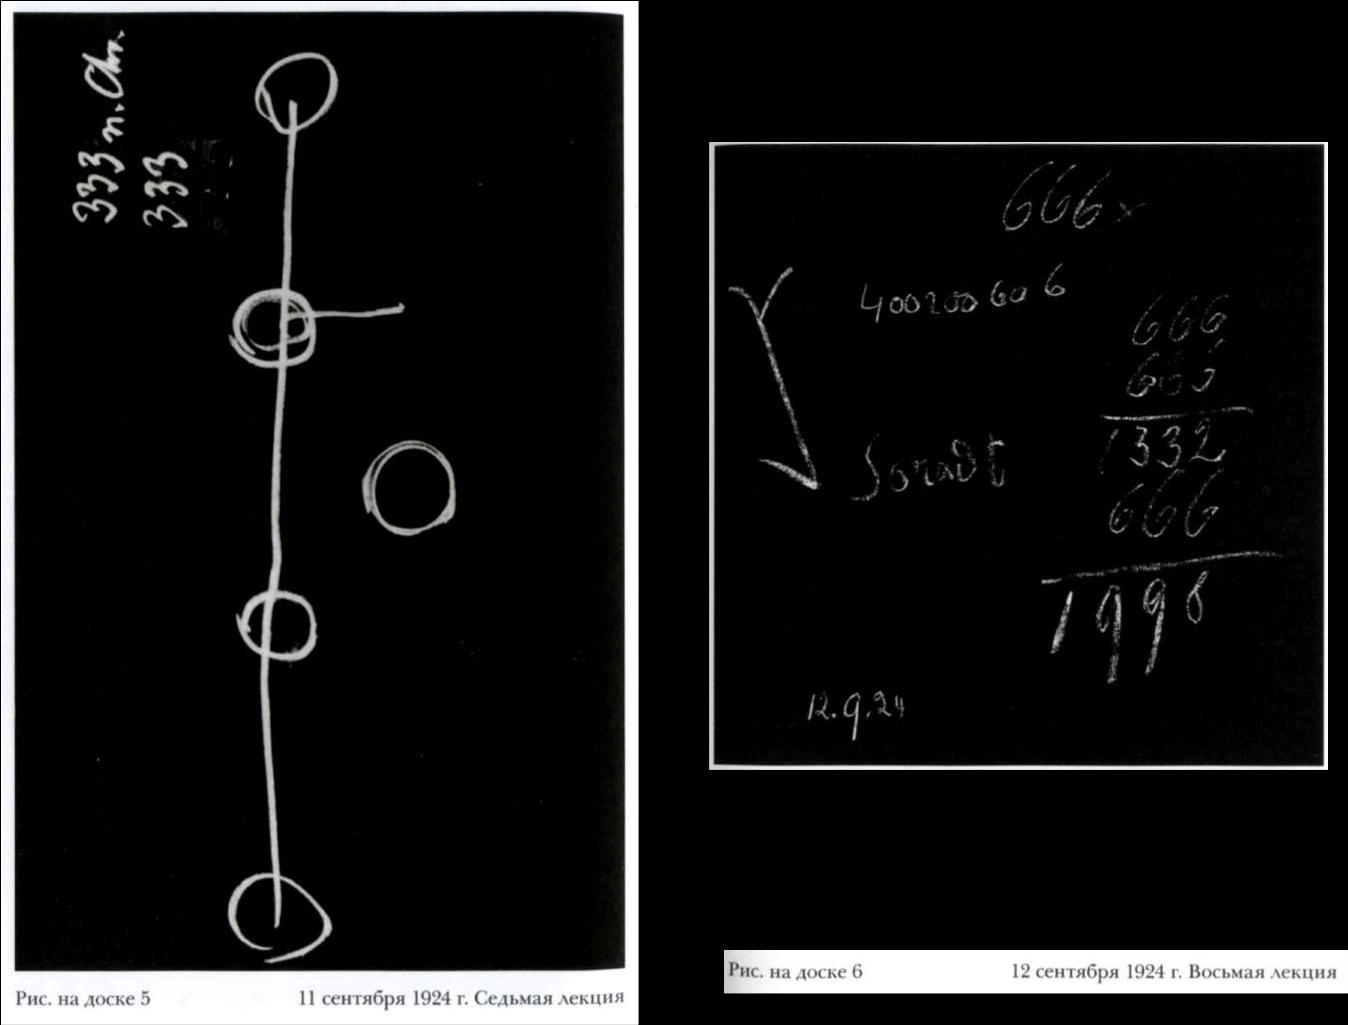 333 n. Chr.
333
Рис. на доске 5
11 сентября 1924 г. Седьмая лекция
666
400 200 60 6
666
666
1332
666
1998
Soradt
12.9.24
Рис. на доске 6
12 сентября 1924 г. Восьмая лекция